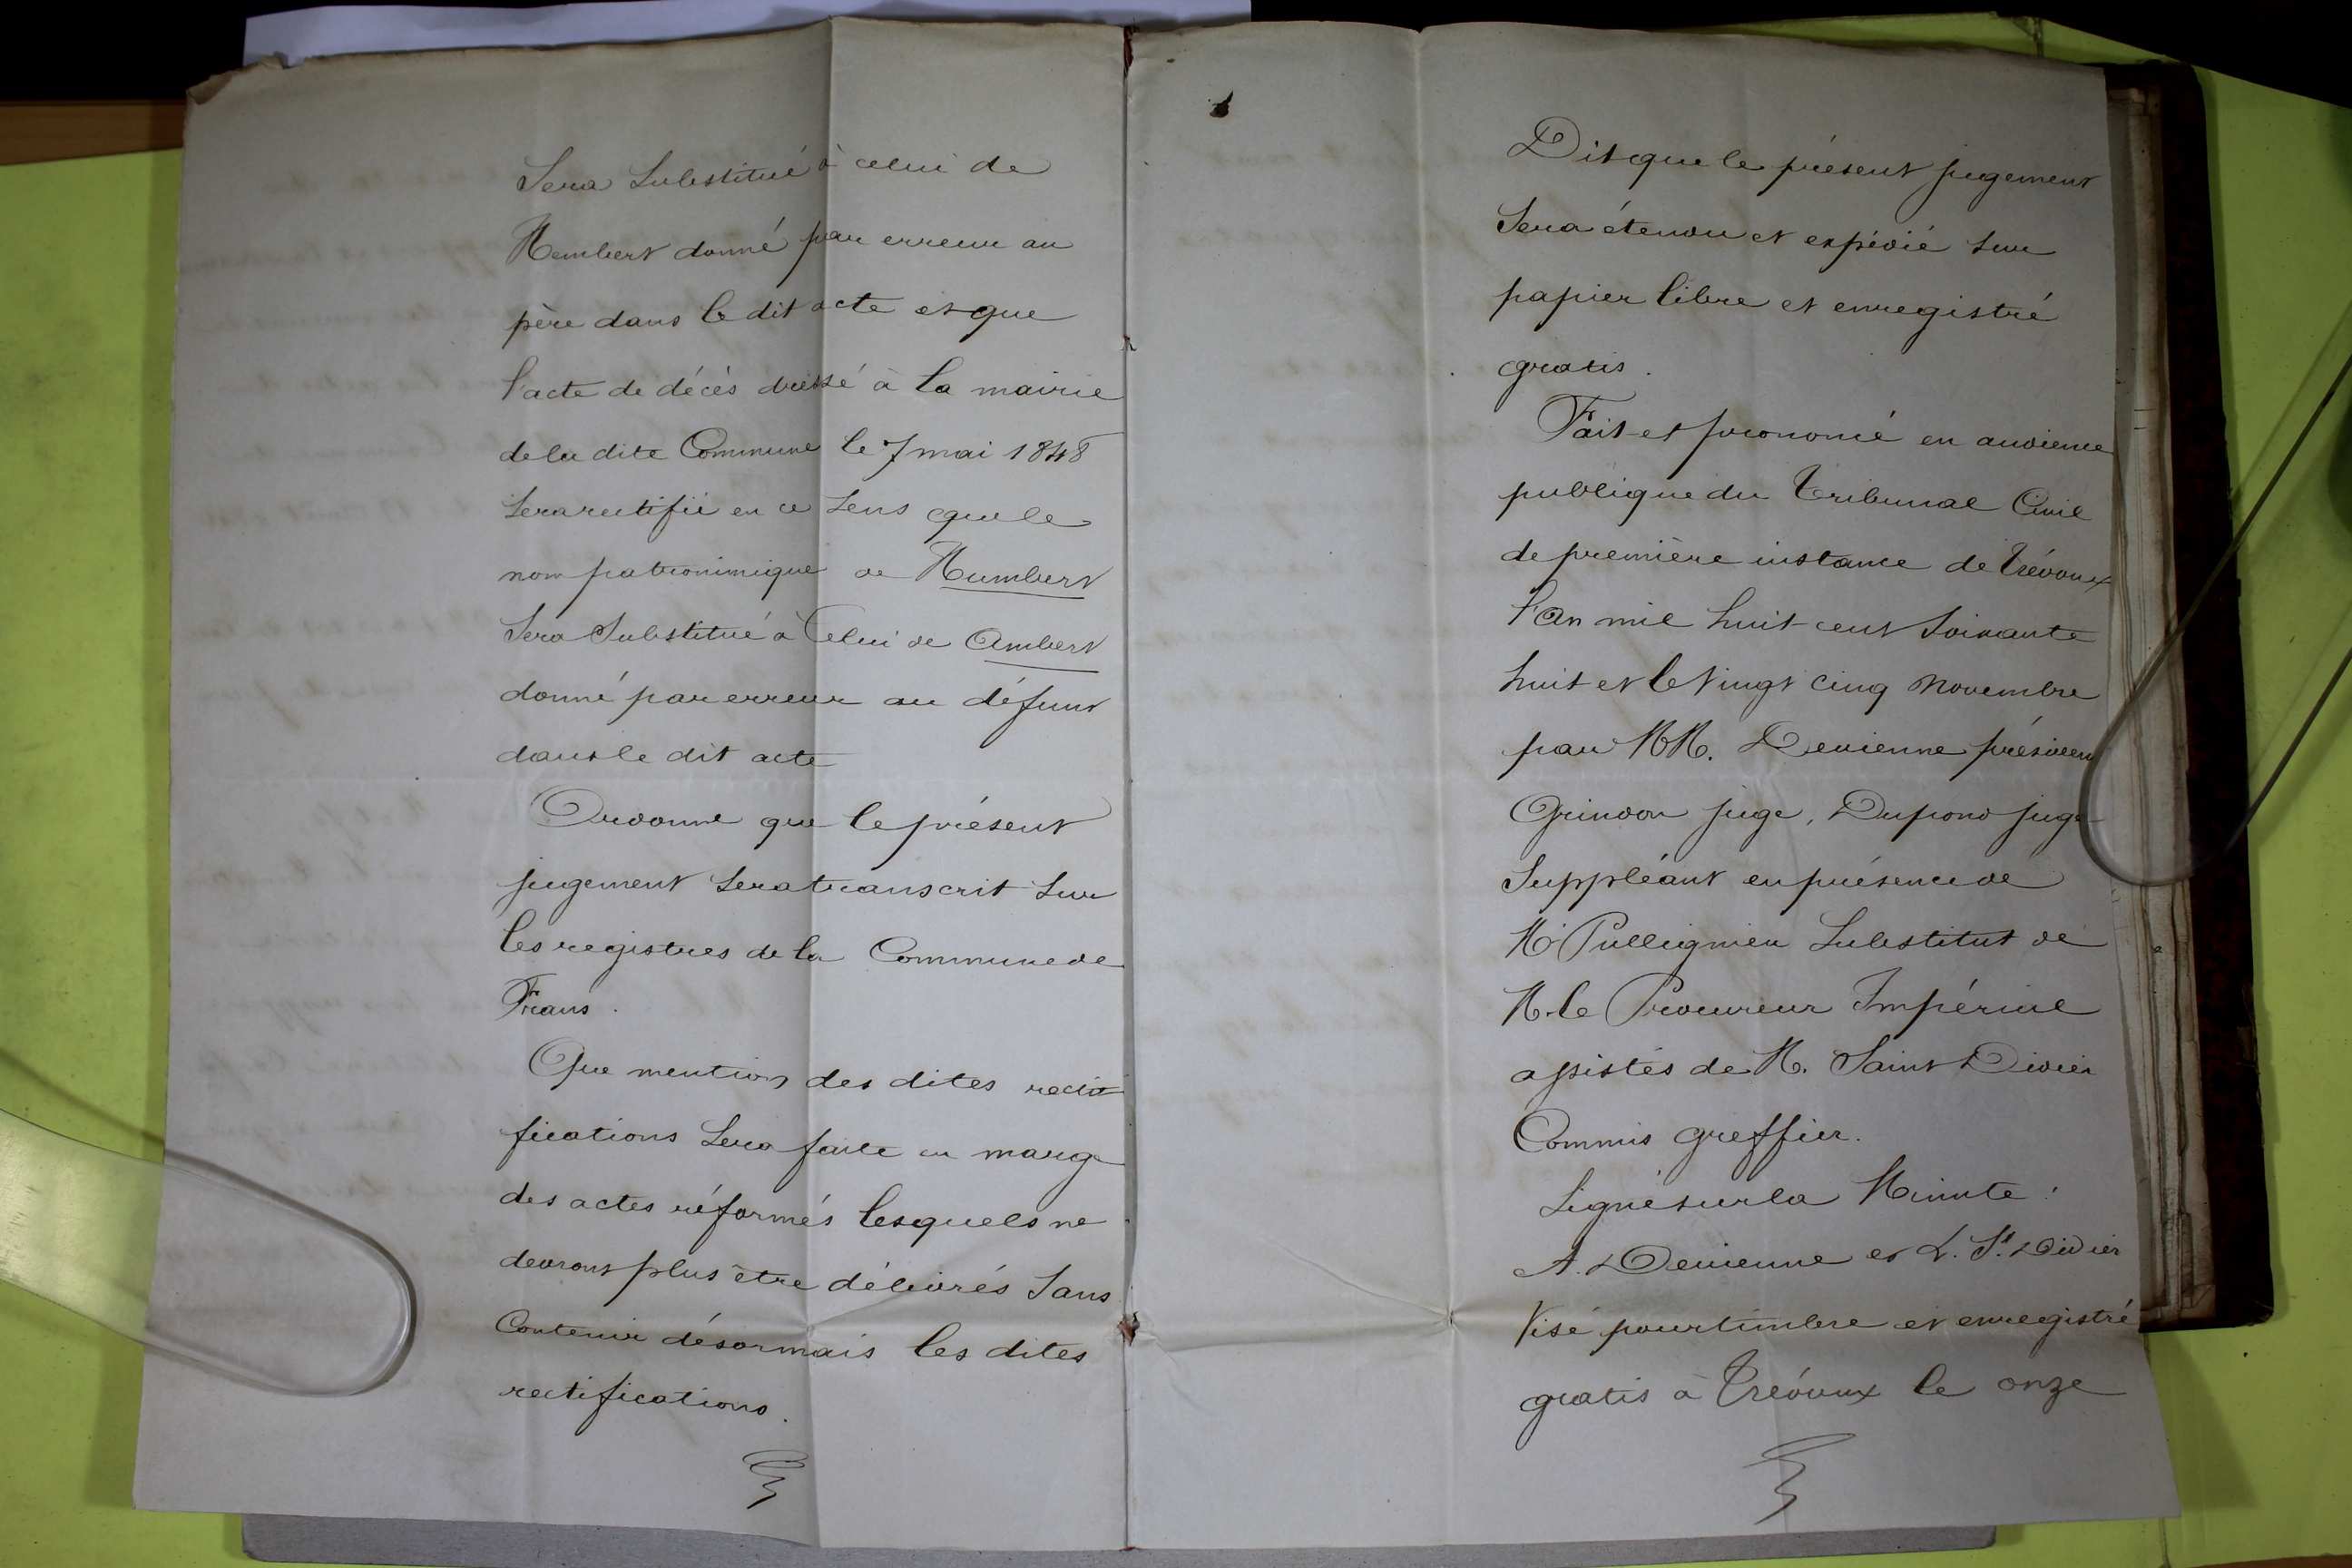 Sera Substitué à celui de
Hembert donné par erreur au
père dans le dit acte et que
l'acte de décès dressé à la mairie
de la dite Commune le 7 mai 1848
Sera rectifié en ce Sens que le
nom patronimique de Humbert
Sera Substitué à Celui de Ambert
donné par erreur au défunt
dans le dit acte
Ordonne que le présent
jugement Sera transcrit Sur
les registres de la Commune de
Frans.
Que mention des dites recti
fications Sera faite en marge
des actes réformés lesquels ne
devront plus être délivrés Sans
Contenir désormais les dites
rectifications.
Dit que le présent jugement
Sera étendu et expédié Sur
papier libre et enregistré
gratis.
Fait et prononcé en audience
publique du Tribunal Civil
de première instance de Trévoux
l'An mil huit cent Soixante
huit et le Vingt Cinq Novembre
par MM. Devienne président
Grindon juge, Dupond juge
Suppléant en présence de
M. Pullignieu Substitut de
M. le Procureur Impérial
assistés de M. Saint Didier
Commis greffier.
Signé sur la Minute :
A. Devienne et L. St. Didier
Visé pour timbre et enregistré
gratis à Trévoux le onze